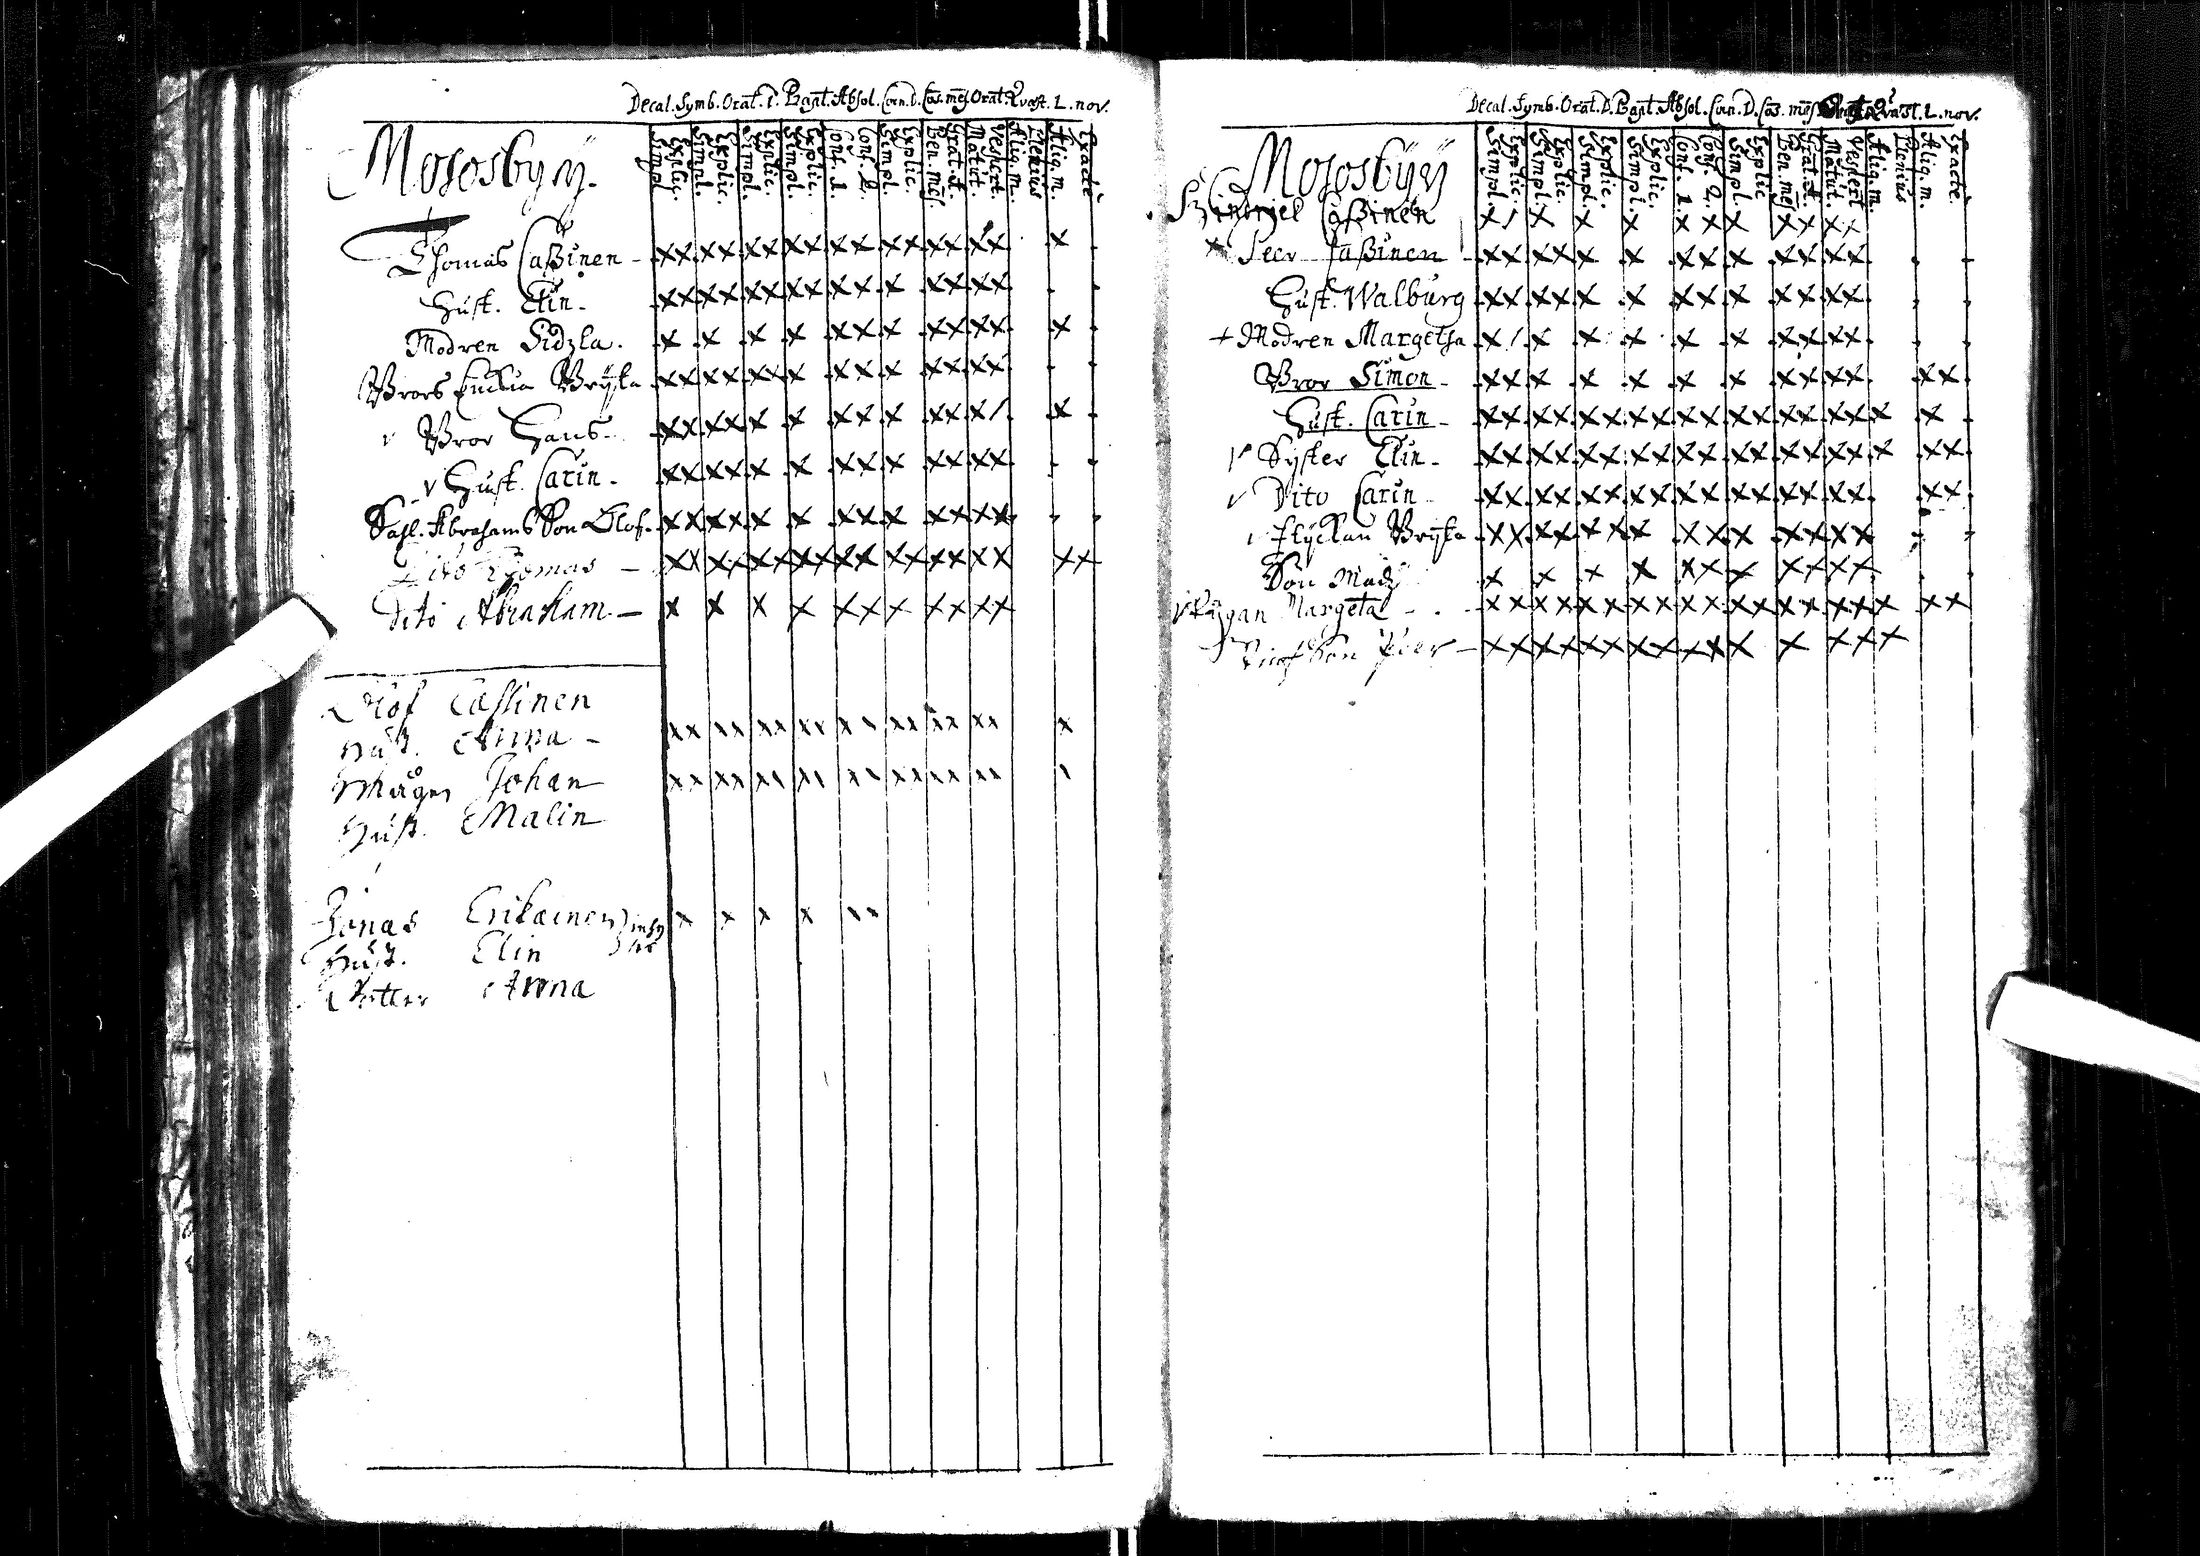 Decal. Symb. Orat. D. Bapt. Absol. Cœn. D. Cōs. mēs. Orat. Qvæst. L. nov.
Simpl. Explic. Simpl. Explic. Simpl. Explic. Simpl. Explic. Conf. 1. Conf. 2. Simpl. Explic. Ben. mēs. Grat. a. Matut. Vespert. Aliq. m. Plenius Aliq. m. Exacte
Mososbyÿ.
Thomas Caßinen
Hust. Elin.
Modren Sidzla.
Brors Enckia Brÿta
v Bror Hans
v Hust. Carin.
Sahl. Abrahams Son Olof.
Dito Thomas
Dito Abraham.
Olof Cassinen
Hust. Anna
Mågen Johan
Hust. Malin
Jonas Erikainen
Hust. Elin
Dotter Anna
Decal. Symb. Orat. D. Bapt. Absol. Cœn. D. Cōs. mēs. Qvæst. L. nov.
Simpl. Explic. Simpl. Explic. Simpl. Explic. Simpl. Explic. Conf. 1. Conf. 2. Simpl. Explic Ben. mēs Grat. a. Matut. Vespert Aliq. m. Plenius Aliq. m. Exacte.
Mososbÿÿ
Caßinen
Peer Caßinen
Hust. Walburg
+ Modren Margetha
Bror Simon
Hust. Carin
v Syster Elin
v Dito Carin
v Flyckan Brÿta
Son Madz
Pÿgan Margeta
Son Peer